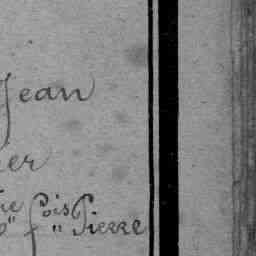 Jean
er
re fois
" " Pierre